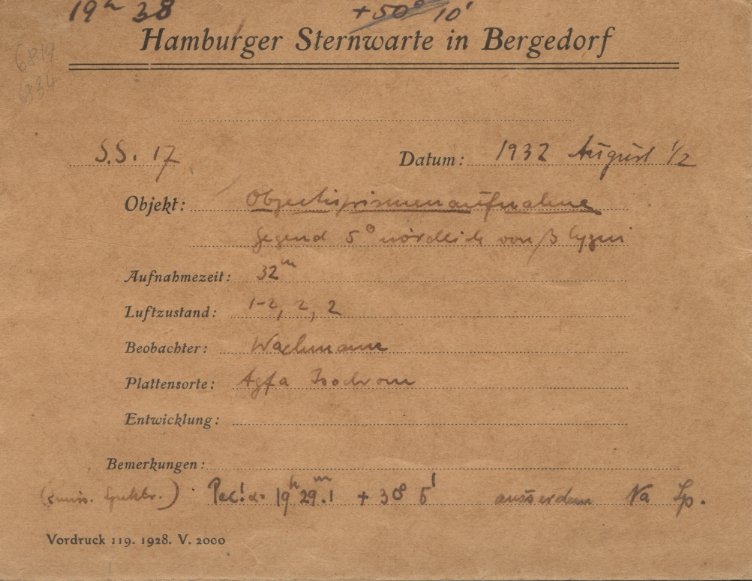 19h 38 +50° 10'
Hamburger Sternwarte in Bergedorf
S.S. 17 Datum: 1932 August 1/2
Objekt: Objectivprismenaufnahme
Gegend 5° nördlich von β Cygni
Aufnahmezeit: 32m
Luftzustand: 1-2, 2, 2
Beobachter: Wachmann
Plattensorte: Agfa Isochrom
Entwicklung:
Bemerkungen:
Pec! 19h 29m.1 + 30° 5' ausserdem Na Sp.
Vordruck 119. 1928. V. 2000